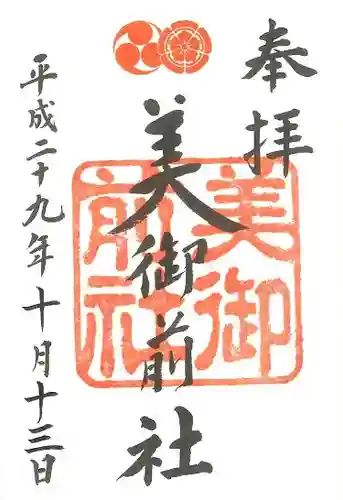 奉拝
美御前社
美御前社
平成二十九年十月十三日